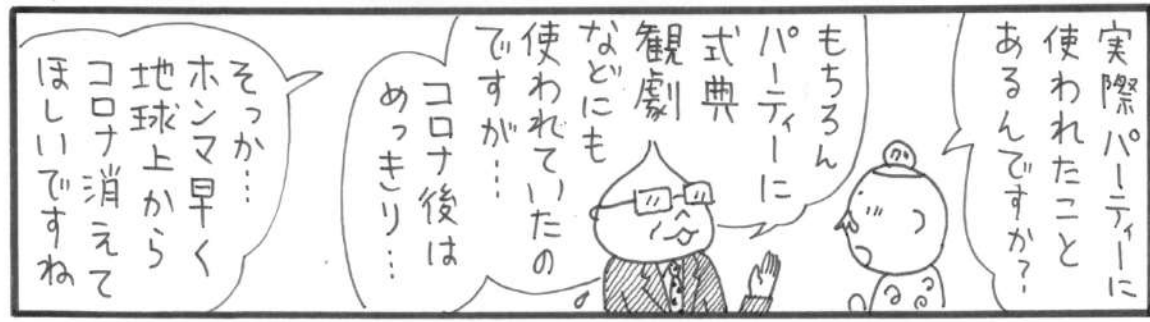 実際パーティーに
使われたこと
あるんですか?
もちろん
パーティーに
式典
観劇
などにも
使われていたの
ですが…
コロナ後は
めっきり…
そっか…
ホンマ早く
地球上から
コロナ消えて
ほしいですね